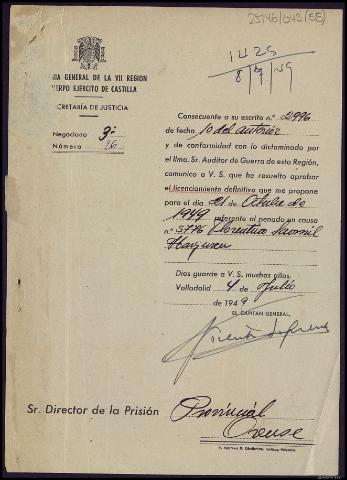 25146/043(55)
1425
8/7/49
NIA GENERAL DE LA VII REGION
UERPO EJERCITO DE CASTILLA
SECRETARIA DE JUSTICIA
Negociado 3º
Número
Consecuente a su escrito n.º 2996
de fecha 10 del anterior
y de conformidad con lo dictaminado por
el Ilmo. Sr. Auditor de Guerra de esta Región,
comunico a V. S. que he resuelto aprobar
el licenciamiento definitivo que me propone
para el día 21 de Octubre de
1949 referente al penado en causa
n.º 5776 Florentino
Dios guarde a V. S. muchos años.
Valladolid 4 de Julio
de 1949
EL CAPITAN GENERAL,
Sr. Director de la Prisión Provincial
Orense